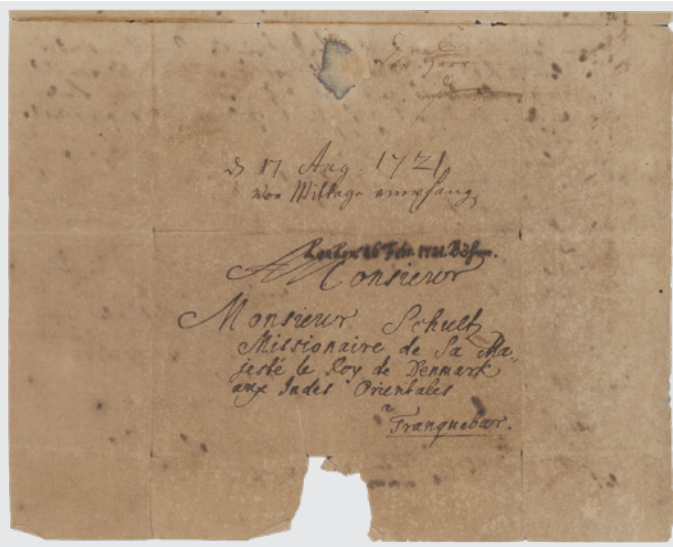 d 17 Aug. 1721
vor Mittage empfang
London 26 Febr. 1721. Böhm.
A Monsieur
Monsieur Schultz
Missionaire de Sa Ma,
jesté le Roy de Denmark
aux Indes Orientales
a
Tranquebar.